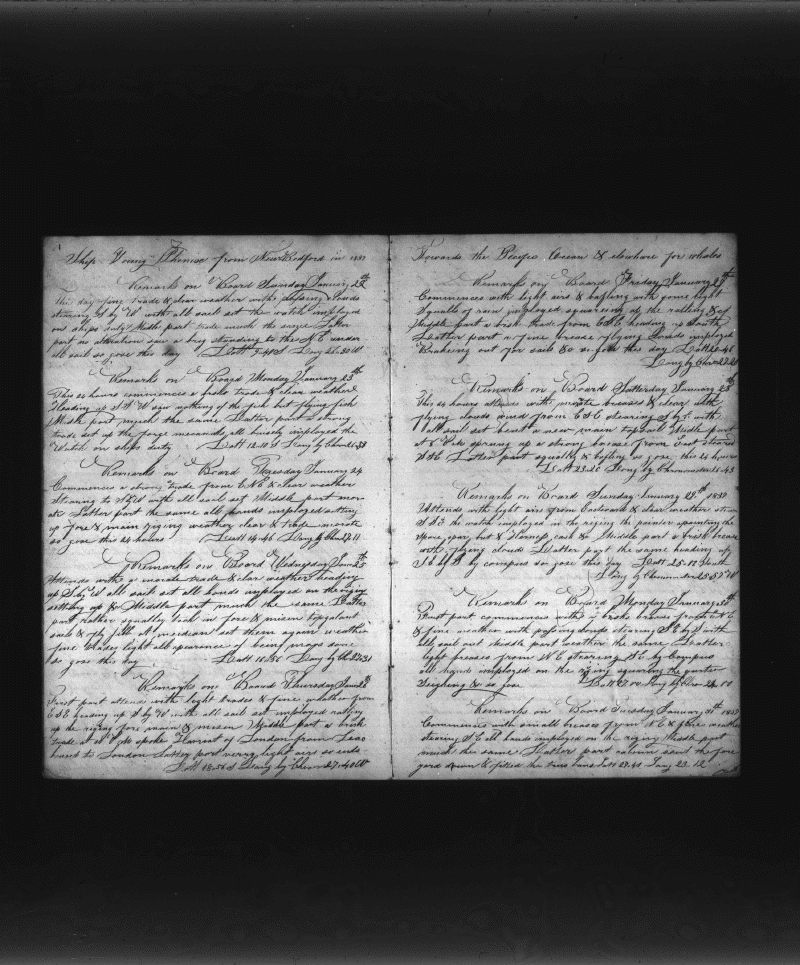 Ship Young Phenix from New Bedford in 1837
Remarks on Board Sunday January 22th
This day fine trade & clear weather with passing clouds
steering S by W with all sail set the watch employed
on ships duty Middle part trade much the same Latter
part no alteration saw a brig standing to the N E under
all sail so gose this day Latt Long
Remarks on Board Monday January 23th
This 24 hours commences a brisk trade & clear weather
Heading up S S W saw nothing of the fish but flying fish
Middle part much the same Latter part a strong
trade set up the forge mecanicks all buisily employed the
Watch on ships duty Latt 12-10 S Long by Chro
Remarks on Board Tuesday January 24
Commences a strong trade from E N E & clear weather
Stearing to with all sail set Middle part mor
ate Latter part the same all hands employed setting
up fore & main riging weather clear & trade morate
so gose this 24 hours Latt 14-46 Long by Chro 27.11
Remarks on Board Wednesday Jan 25th
Attends with a morate trade & clear weather heading
up S by W all sail set all hands employed on the riging
setting up & Middle part much the same Latter
part rather squally took in fore & mizen topgalant
sails & fly jib At Meridian set them again weather
fine trades light all apearance of being more some
so gose this day Latt 16:50 Long by Ch
Remarks on Board Thursday Jan 26th
First part attend with light trades & fine weather from
E S E heading up S by W with all sail set employed ratling
up the riging fore main & mizen Middle part a brisk
trade at spoke of London from
bound to London Latter part verry light airs so ends
Latt 18:58 S Long by Chro 27:40 W
Towards the Pacific Ocean & elswhere for whales
Remarks on Board Friday January 27th
Commences with light airs & bafling with some light
Squalls of rain imployed squaring up the ratling &c
Middle part a brisk trade from E S E heading up South
Latter part a fine breeze flying clouds imployed
Braking out for sails &c so gose this day Latt 21-46
Long by Chro 27.20
Remarks on Board Satterday January 28th
This 24 hours attends with morate breases & clear with
flying clouds wind from E S E stearing S by with
all sail set bent a new main topsail Middle part
at sprung up a strong brease from East steared
Latter part squally & bafling so gose this 24 hours
Latt 23-26 Long by Chronometer 26-43
Remarks on Board Sunday January 29th 1837
Attends with light airs from Eastward & clear weather stear
the watch imployed in the riging the painter painting the
spare spar, but & Harness cask &c Middle part a brisk breese
with flying clouds Latter part the same heading up
S by by compas so gose this day Latt 25-10 South
Long by Chronometer 25:57 W
Remarks on Board Monday January 30th
First part commences with a brake breeze from E N E
& fine weather with passing clouds stearing S E by S with
all sail out Middle part weather the same Latter
light breases from N E stearing S E by Compas
all hands imployed on the riging squaring the
Seizeing &c so gose Latt 27:00 Long by Chro 24.00
Remarks on Board Tuesday January 31th 1837
Commences with small breases from N E & fine weather
stearing S E all hands imployed on the riging Middle part
much the same Latter part calm sent the fore
yard down & fitted the Latt 27.40 Long 23.12